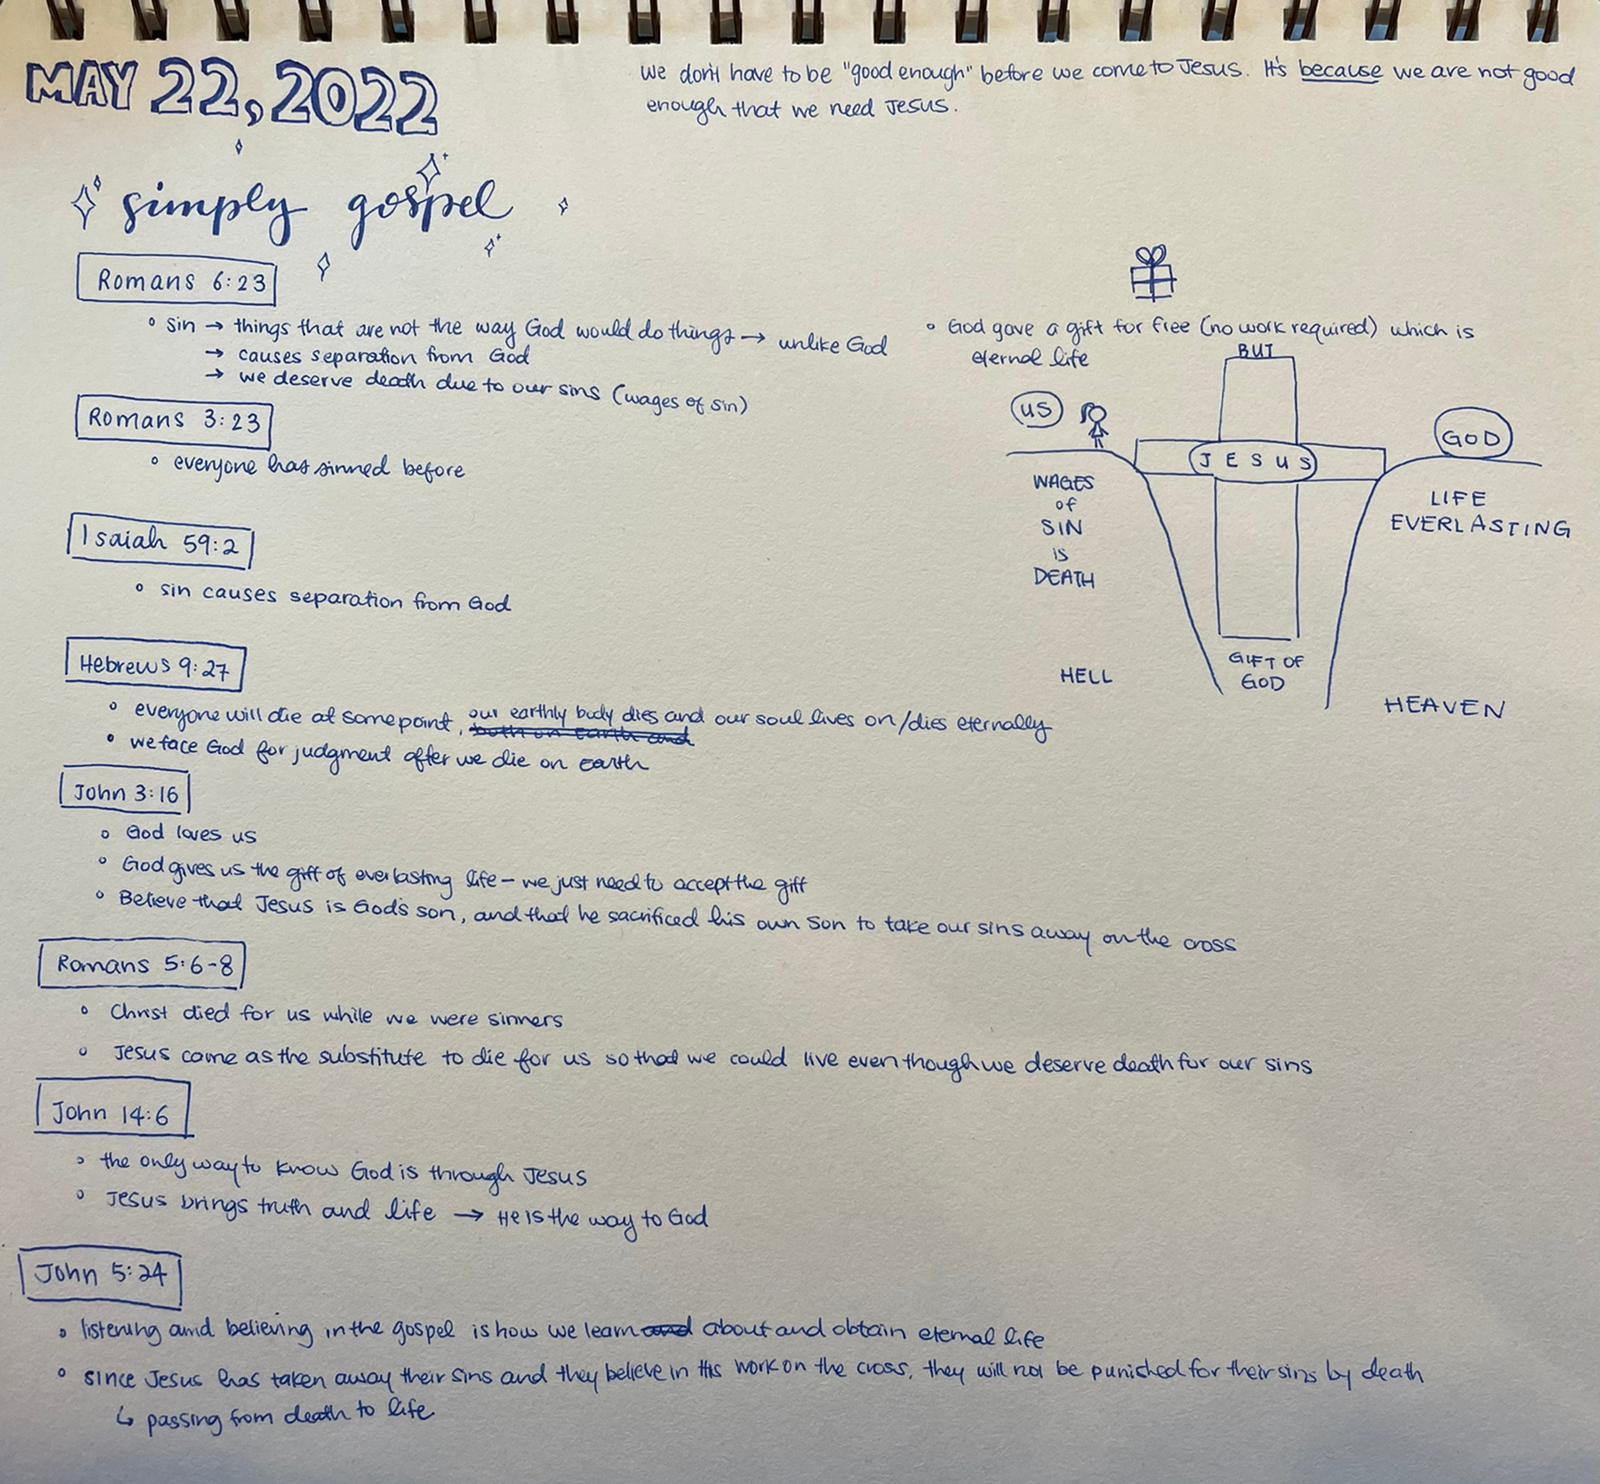 MAY 22, 2022
We don't have to be "good enough" before we come to Jesus. It's because we are not good
enough that we need Jesus.
simply gospel
Romans 6:23
sin → things that are not the way God would do things → unlike God
→ causes separation from God
→ we deserve death due to our sins (wages of sin)
God gave a gift for free (no work required) which is
eternal life
BUT
US
GOD
JESUS
WAGES
of
SIN
is
DEATH
LIFE
EVERLASTING
HELL
GIFT OF
GOD
HEAVEN
Romans 3:23
everyone has sinned before
Isaiah 59:2
sin causes separation from God
Hebrews 9:27
everyone will die at some point, our earthly body dies and our soul lives on/dies eternally
both on Earth and
we face God for judgment after we die on Earth
John 3:16
God loves us
God gives us the gift of everlasting life - we just need to accept the gift
Believe that Jesus is God's son, and that he sacrificed his own son to take our sins away on the cross
Romans 5:6-8
Christ died for us while we were sinners
Jesus came as the substitute to die for us so that we could live even though we deserve death for our sins
John 14:6
the only way to know God is through Jesus
Jesus brings truth and life → He is the way to God
John 5:24
listening and believing in the gospel is how we learn and about and obtain eternal life
since Jesus has taken away their sins and they believe in His work on the cross, they will not be punished for their sins by death
↳ passing from death to life